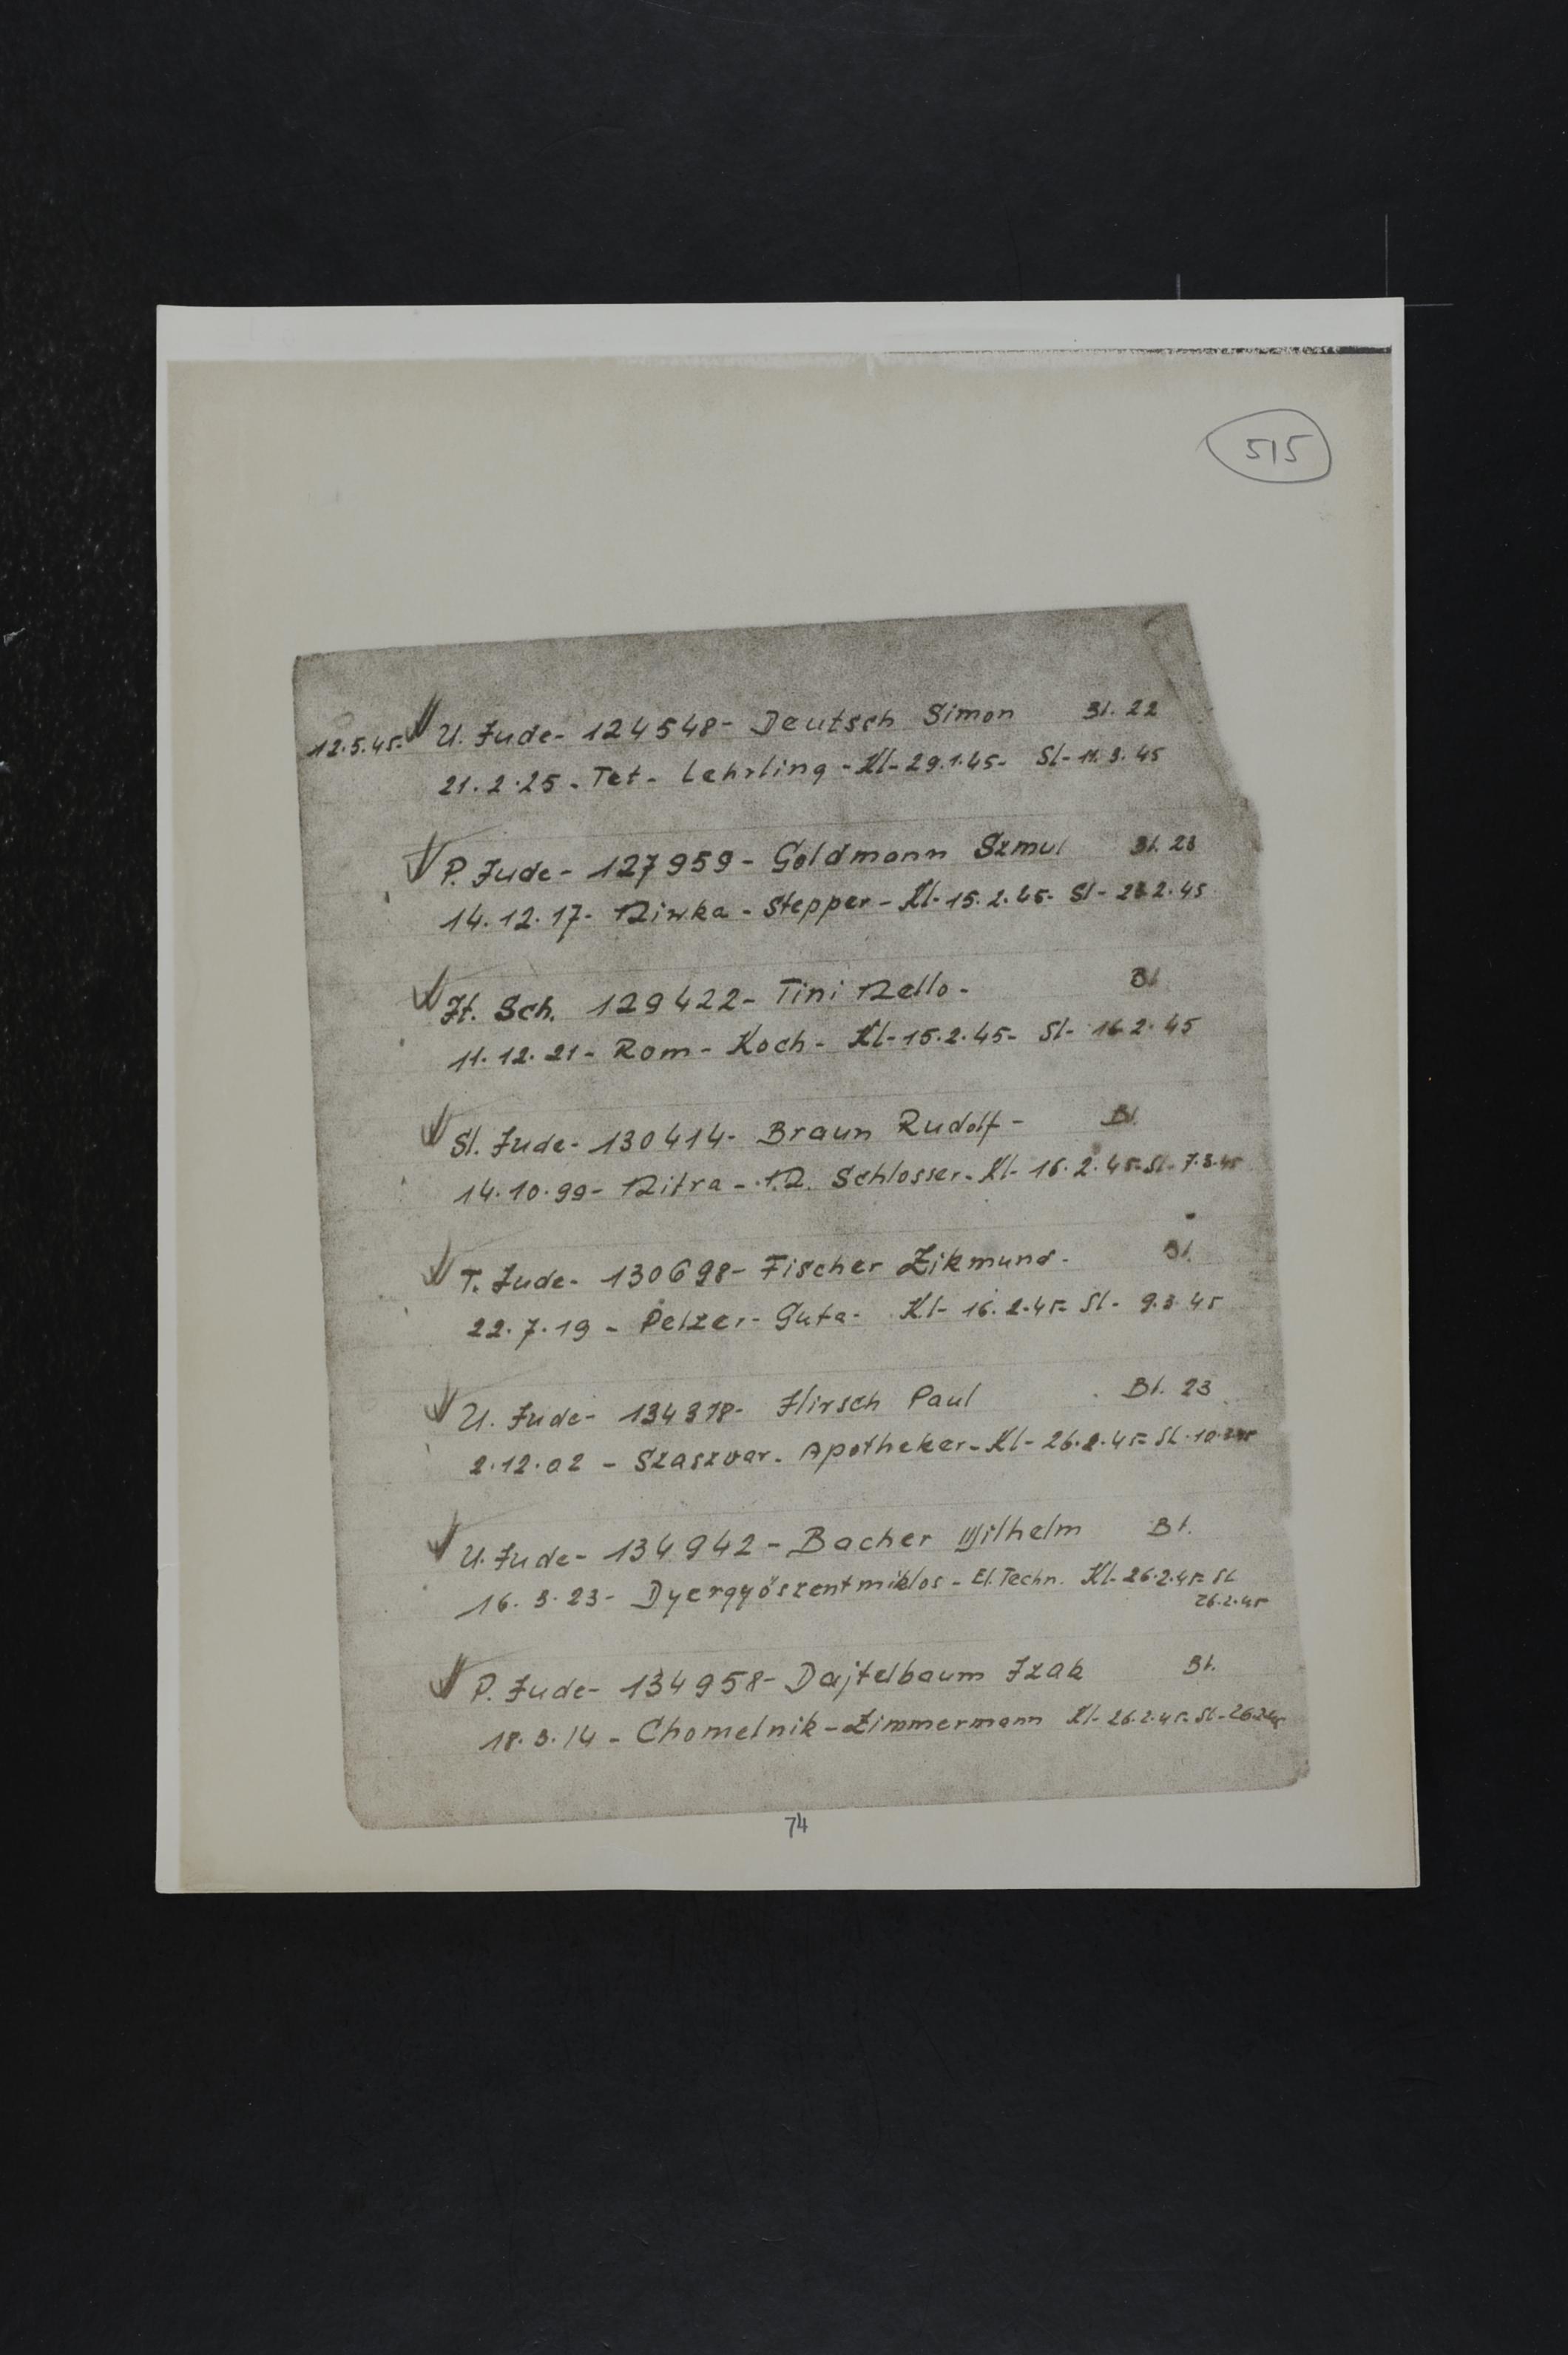 515
12.5.45. U. Jude- 124548- Deutsch Simon Bl. 22
21.2.25 - Tet - Lehrling - Kl-29.1.45- Sl- 11.3.45
P. Jude- 127959- Goldmann Szmul Bl. 23
14.12.17- Niwka - Stepper - Kl-15.2.45- Sl- 2.45
It. Sch. 129422- Tini Nello- Bl
11.12.21- Rom- Koch- Kl-15.2.45- Sl- 16.2.45
Sl. Jude- 130414- Braun Rudolf- Bl.
14.10.99- Nitra - N. Schlosser- Kl- 16.2.45- Sl- 7.3.45
T. Jude- 130698- Fischer Zikmund- Bl.
22.7.19 - Pelzer- Guta- Kl- 16.2.45- Sl- 9.3.45
U. Jude- Hirsch Paul Bl. 23
2.12.02 - Szaszvar- Apotheker- Kl- 26.2.45- Sl-
U. Jude- 134942- Bacher Wilhelm Bl.
16.3.23- Dyergyöszentmiklos- El. Techn. Kl- 26.2.45- Sl
26.2.45
P. Jude- 134958- Dajtelbaum Izak Bl.
18.3.14 - Chomelnik-Zimmermann Kl- 26.2.45- Sl- 26.2.45
74